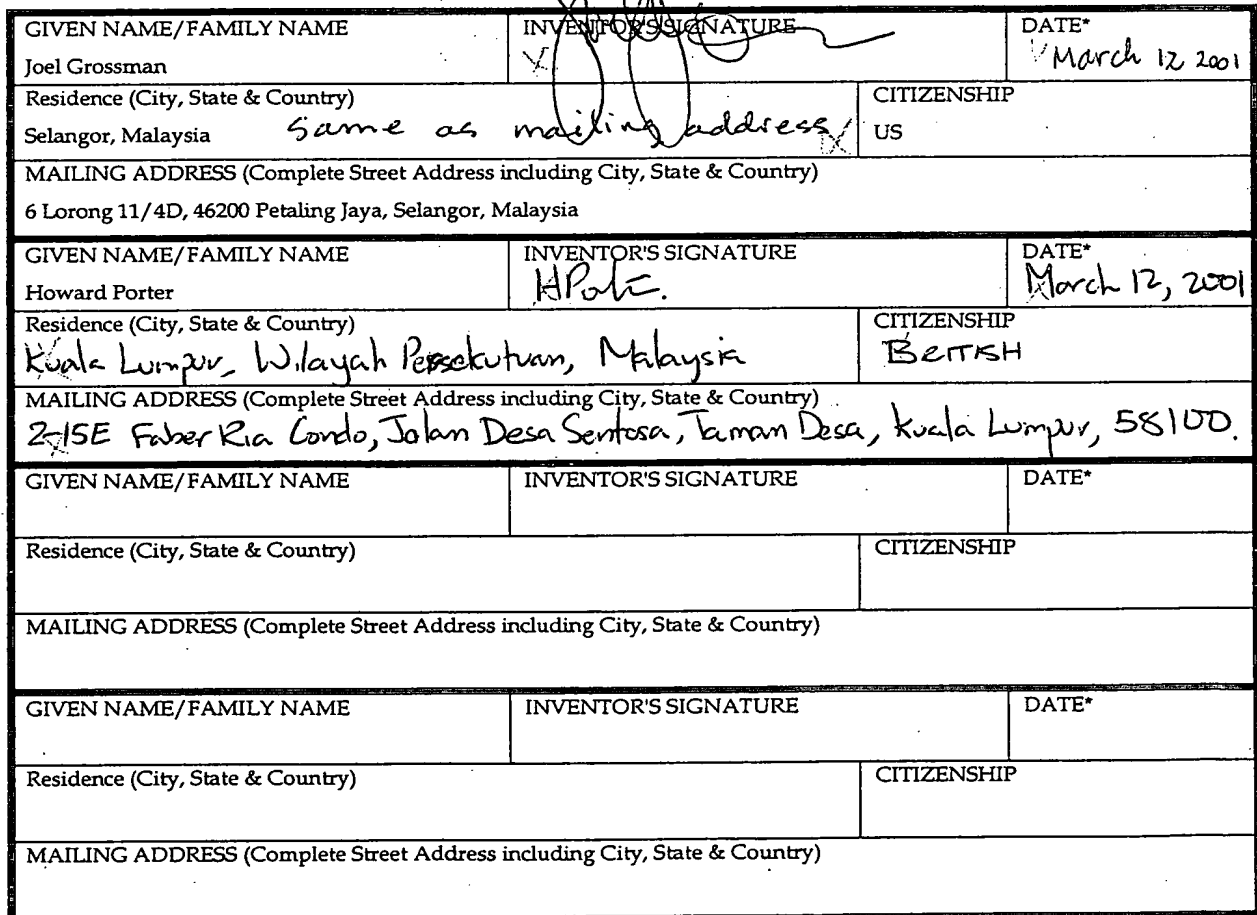 GIVEN NAME/FAMILY NAME INVENTOR'S SIGNATURE DATE*
Joel Grossman March 12 2001
Residence (City, State & Country) CITIZENSHIP
Selangor, Malaysia same as mailing address US
MAILING ADDRESS (Complete Street Address including City, State & Country)
6 Lorong 11/4D, 46200 Petaling Jaya, Selangor, Malaysia
GIVEN NAME/FAMILY NAME INVENTOR'S SIGNATURE DATE*
Howard Porter March 12, 2001
Residence (City, State & Country) CITIZENSHIP
Kuala Lumpur, Wilayah Persekutuan, Malaysia BRITISH
MAILING ADDRESS (Complete Street Address including City, State & Country)
2-15E Faber Ria Condo, Jalan Desa Sentosa, Taman Desa, Kuala Lumpur, 58100.
GIVEN NAME/FAMILY NAME INVENTOR'S SIGNATURE DATE*
Residence (City, State & Country) CITIZENSHIP
MAILING ADDRESS (Complete Street Address including City, State & Country)
GIVEN NAME/FAMILY NAME INVENTOR'S SIGNATURE DATE*
Residence (City, State & Country) CITIZENSHIP
MAILING ADDRESS (Complete Street Address including City, State & Country)